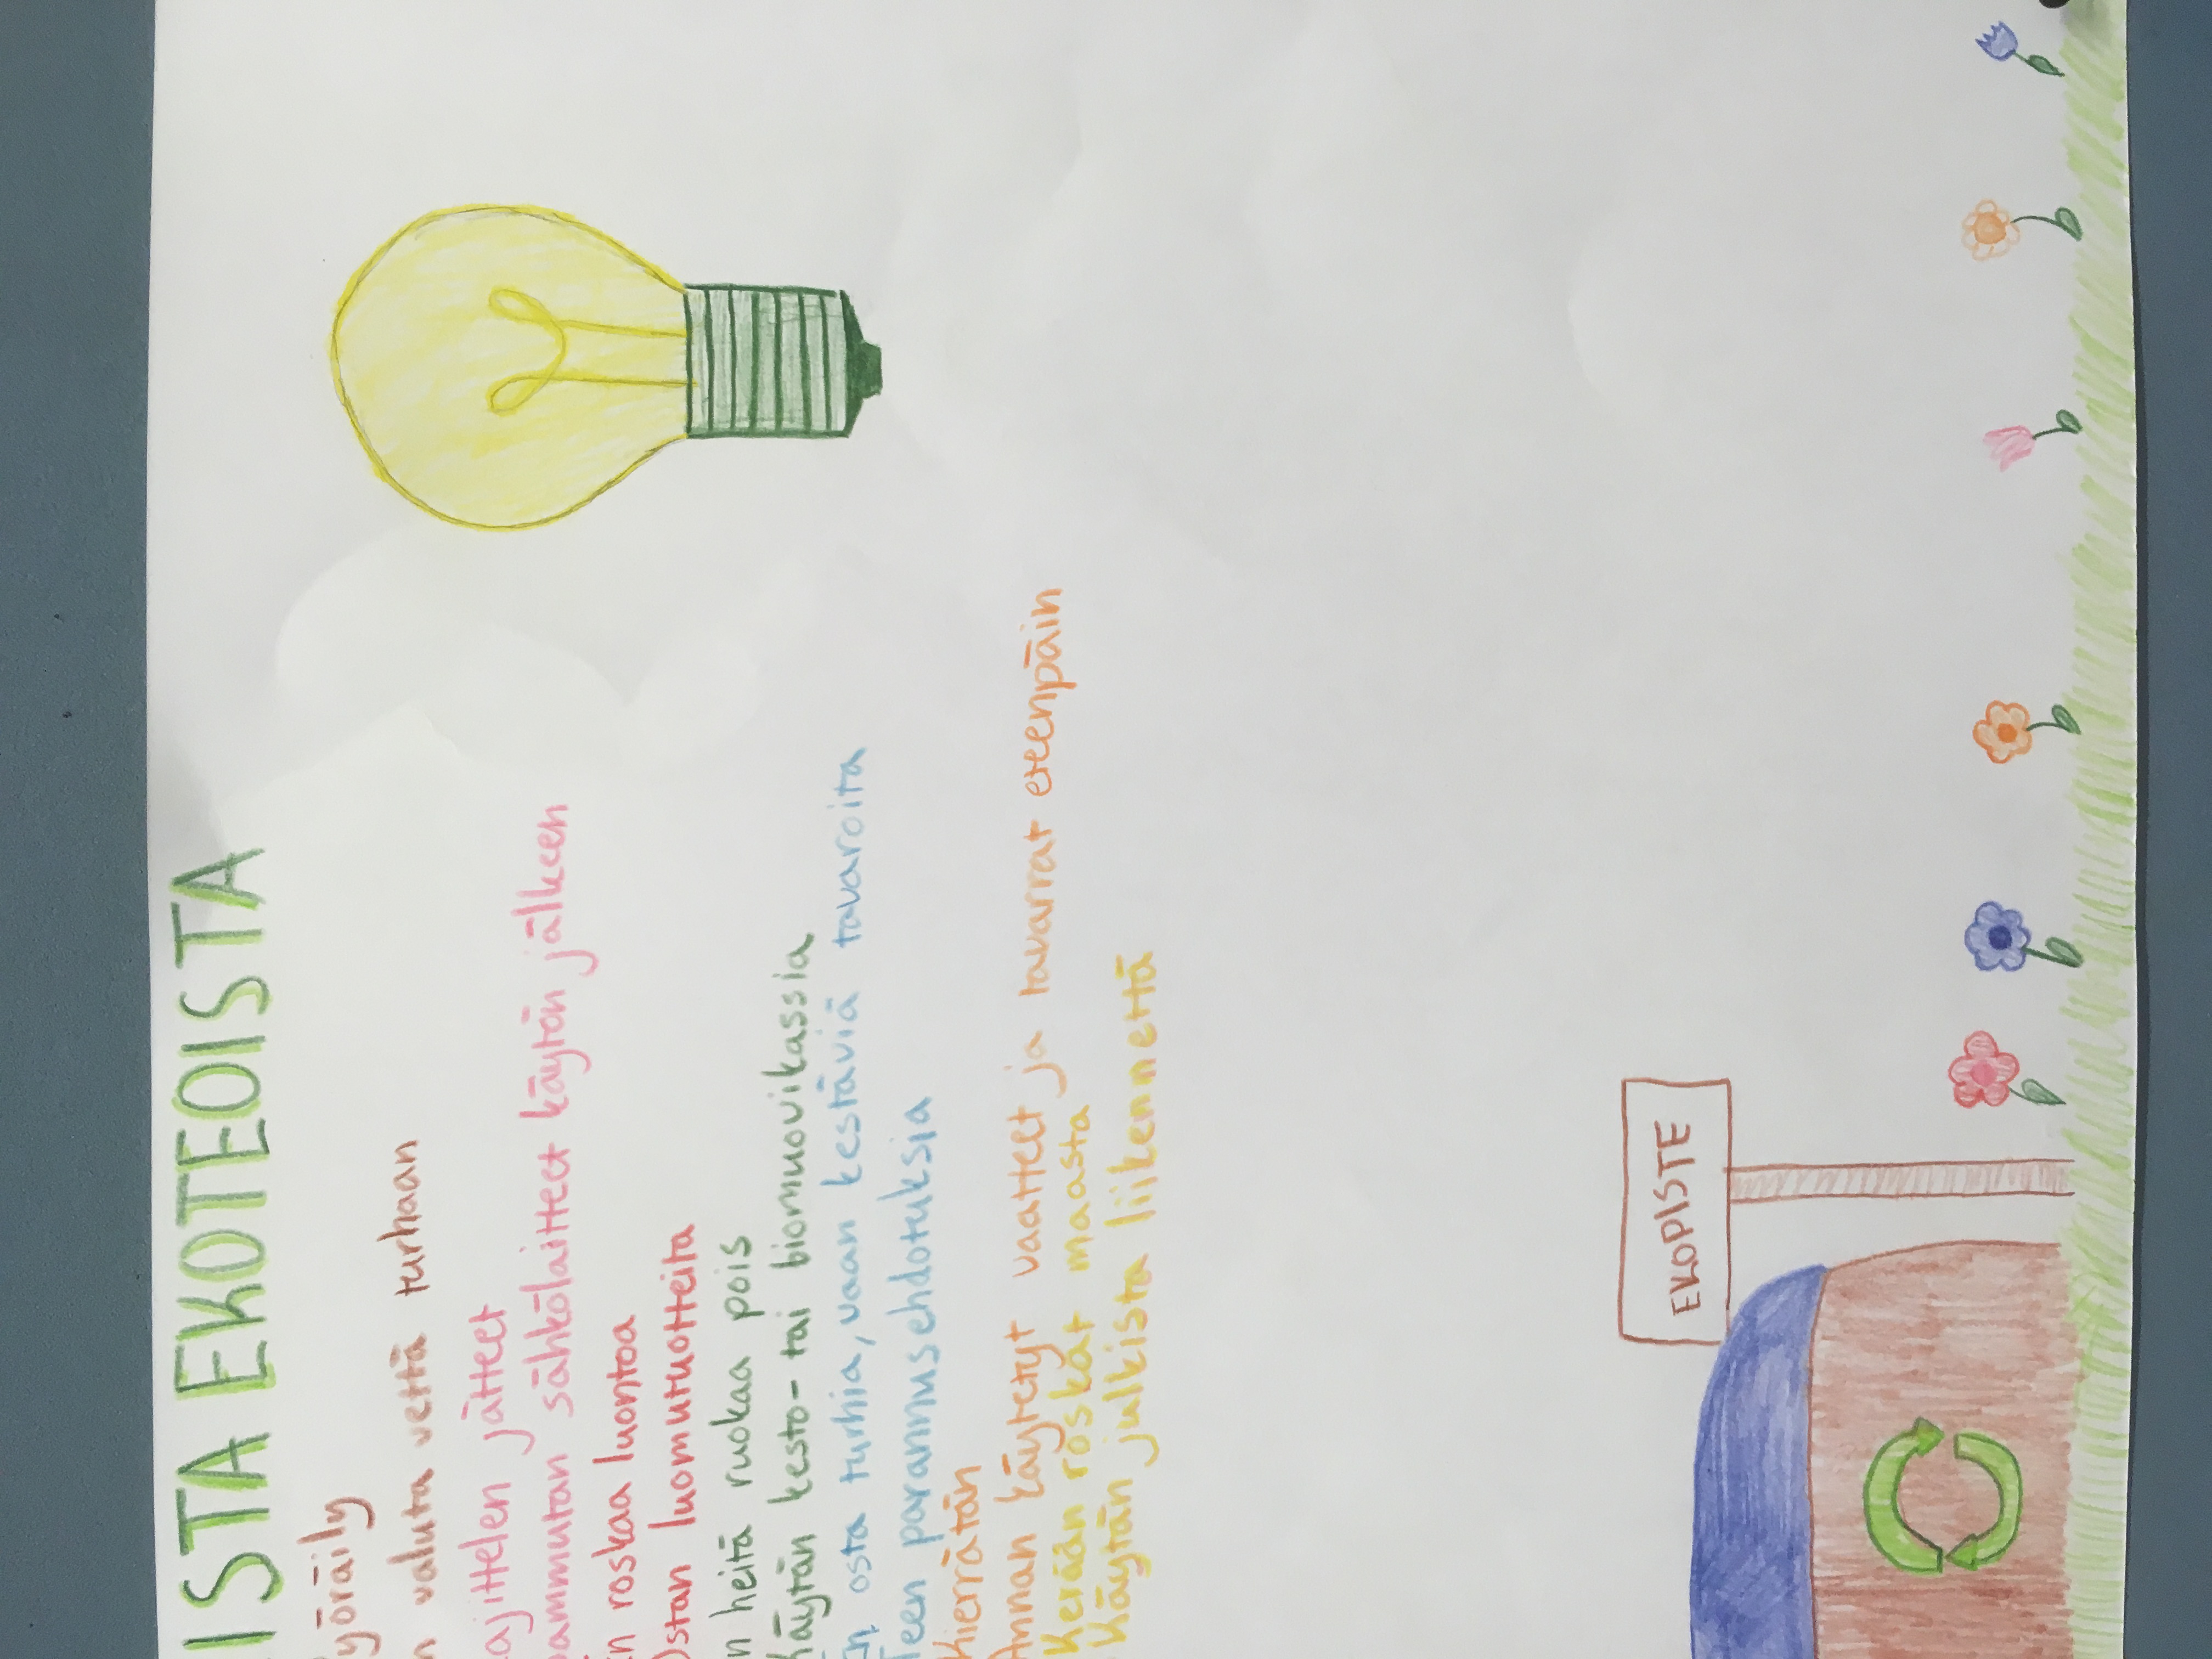 ISTA EKOTEOISTA
yöräily
n valuta vettä turhaan
ajittelen jätteet
ammutan sähkölaitteet käytön jälkeen
n roskaa luontoa
Ostan luomutuotteita
n heitä ruokaa pois
Käytän kesto- tai biomuovikassia
En osta turhia, vaan kestäviä tavaroita
Teen parannusehdotuksia
Kierrätän
Annan käytetyt vaatteet ja tavarrat eteenpäin
Kerään roskat maasta
Käytän julkista liikennettä
EKOPISTE